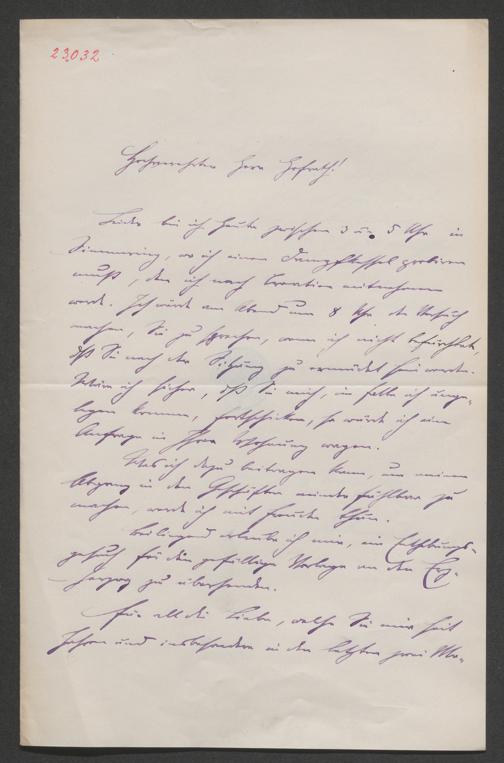 23,032
Hochverehrter Herr Hofrath!
Leider bin ich heute zwischen 3 u. 5 Uhr in
Simmering, wo ich einen Dampfkessel probieren
muß, den ich nach Croatien mitnehmen
werde. Ich würde am Abend um 8 Uhr den Versuch
machen, Sie zu sprechen, wenn ich nicht befürchtete,
daß Sie nach der Sitzung zu ermüdet sein werden.
Wäre ich sicher, daß Sie mich, im Falle ich unge-
legen komme, fortschicken, so würde ich eine
Anfrage in Ihrer Wohnung wagen.
Was ich dazu beitragen kann, um meinen
Abgang in den Geschäften minder fühlbar zu
machen, werde ich mit Freuden thun.
Beiliegend erlaube ich mir, ein Enthebungs-
gesuch für die gefällige Vorlage an den Erz-
herzog zu übersenden.
Für all die Liebe, welche Sie mir seit
Jahren und insbesondere in den letzten zwei Mo-